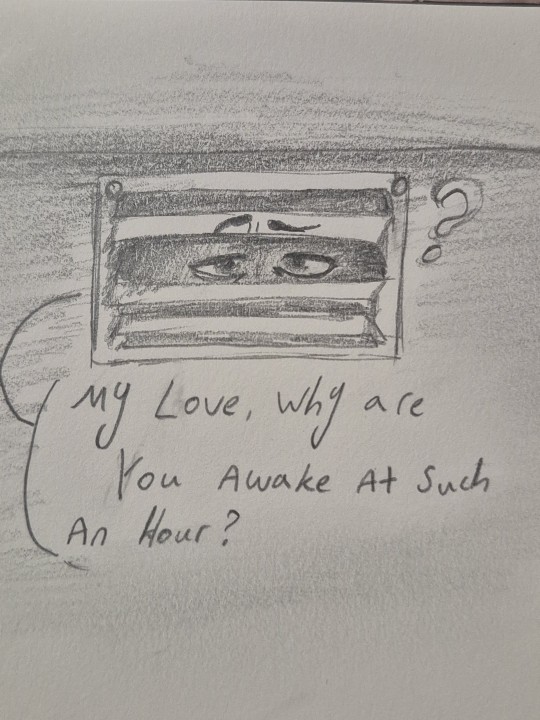 ?
My Love, Why are
You Awake At Such
An Hour?